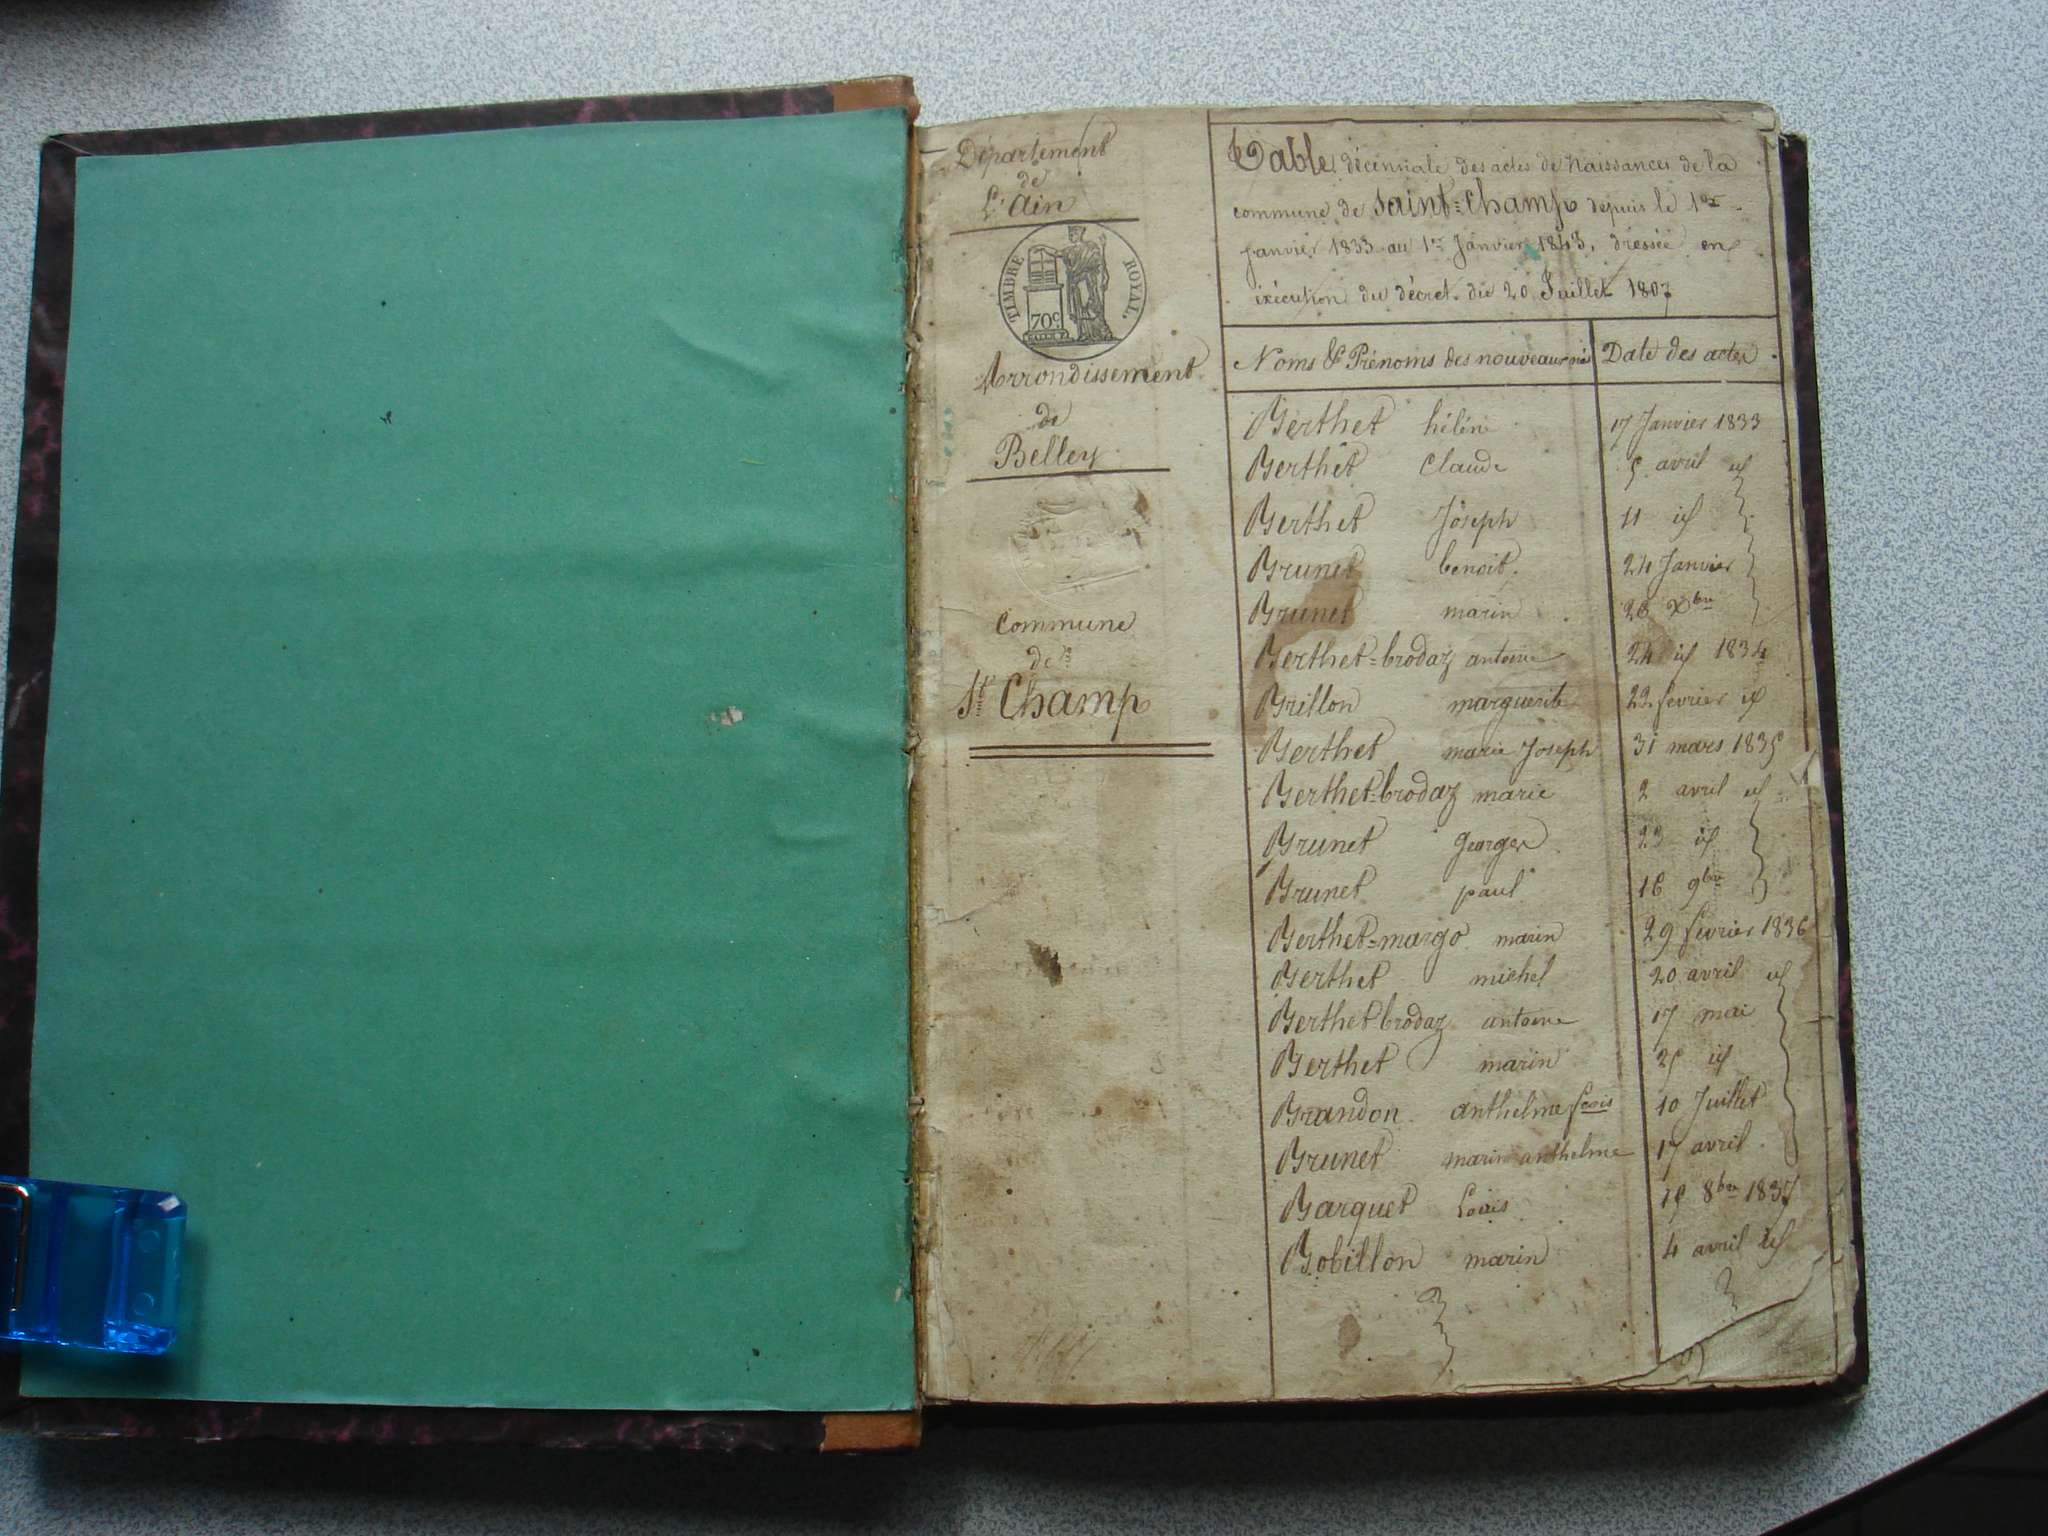 Département
de
L'Ain
TIMBRE ROYAL.
70c
Arrondissement
de
Belley
Commune
de
St Champ
Table décennale des actes de Naissances de la
commune de Saint=Champ depuis le 1er
Janvier 1833 au 1er Janvier 1843, dressée en
exécution du décret du 20 Juillet 1807
Noms & Prénoms des nouveaux nés Date des actes
Berthet hélène 17 Janvier 1833
Berthet Claude 5 avril id
Berthet Joseph 11 id
Brunet benoit. 24 Janvier
Brunet marin 26 Xbre
Berthet=brodaz antoine 24 id 1834
Brillon marguerite 22 fevrier id
Berthet marie Joseph 31 mars 1835
Berthet=brodaz marie 2 avril id
Brunet georges 23 id
Brunet paul 16 9bre
Berthet=margo marin 29 fevrier 1836
Berthet michel 20 avril id
Berthet brodaz antoine 17 mai
Berthet marin 25 id
Brandon anthelme fcois 10 Juillet
Brunet marin anthelme 17 avril
Barquet Louis 15 8bre 1837
Bobillon marin 4 avril id